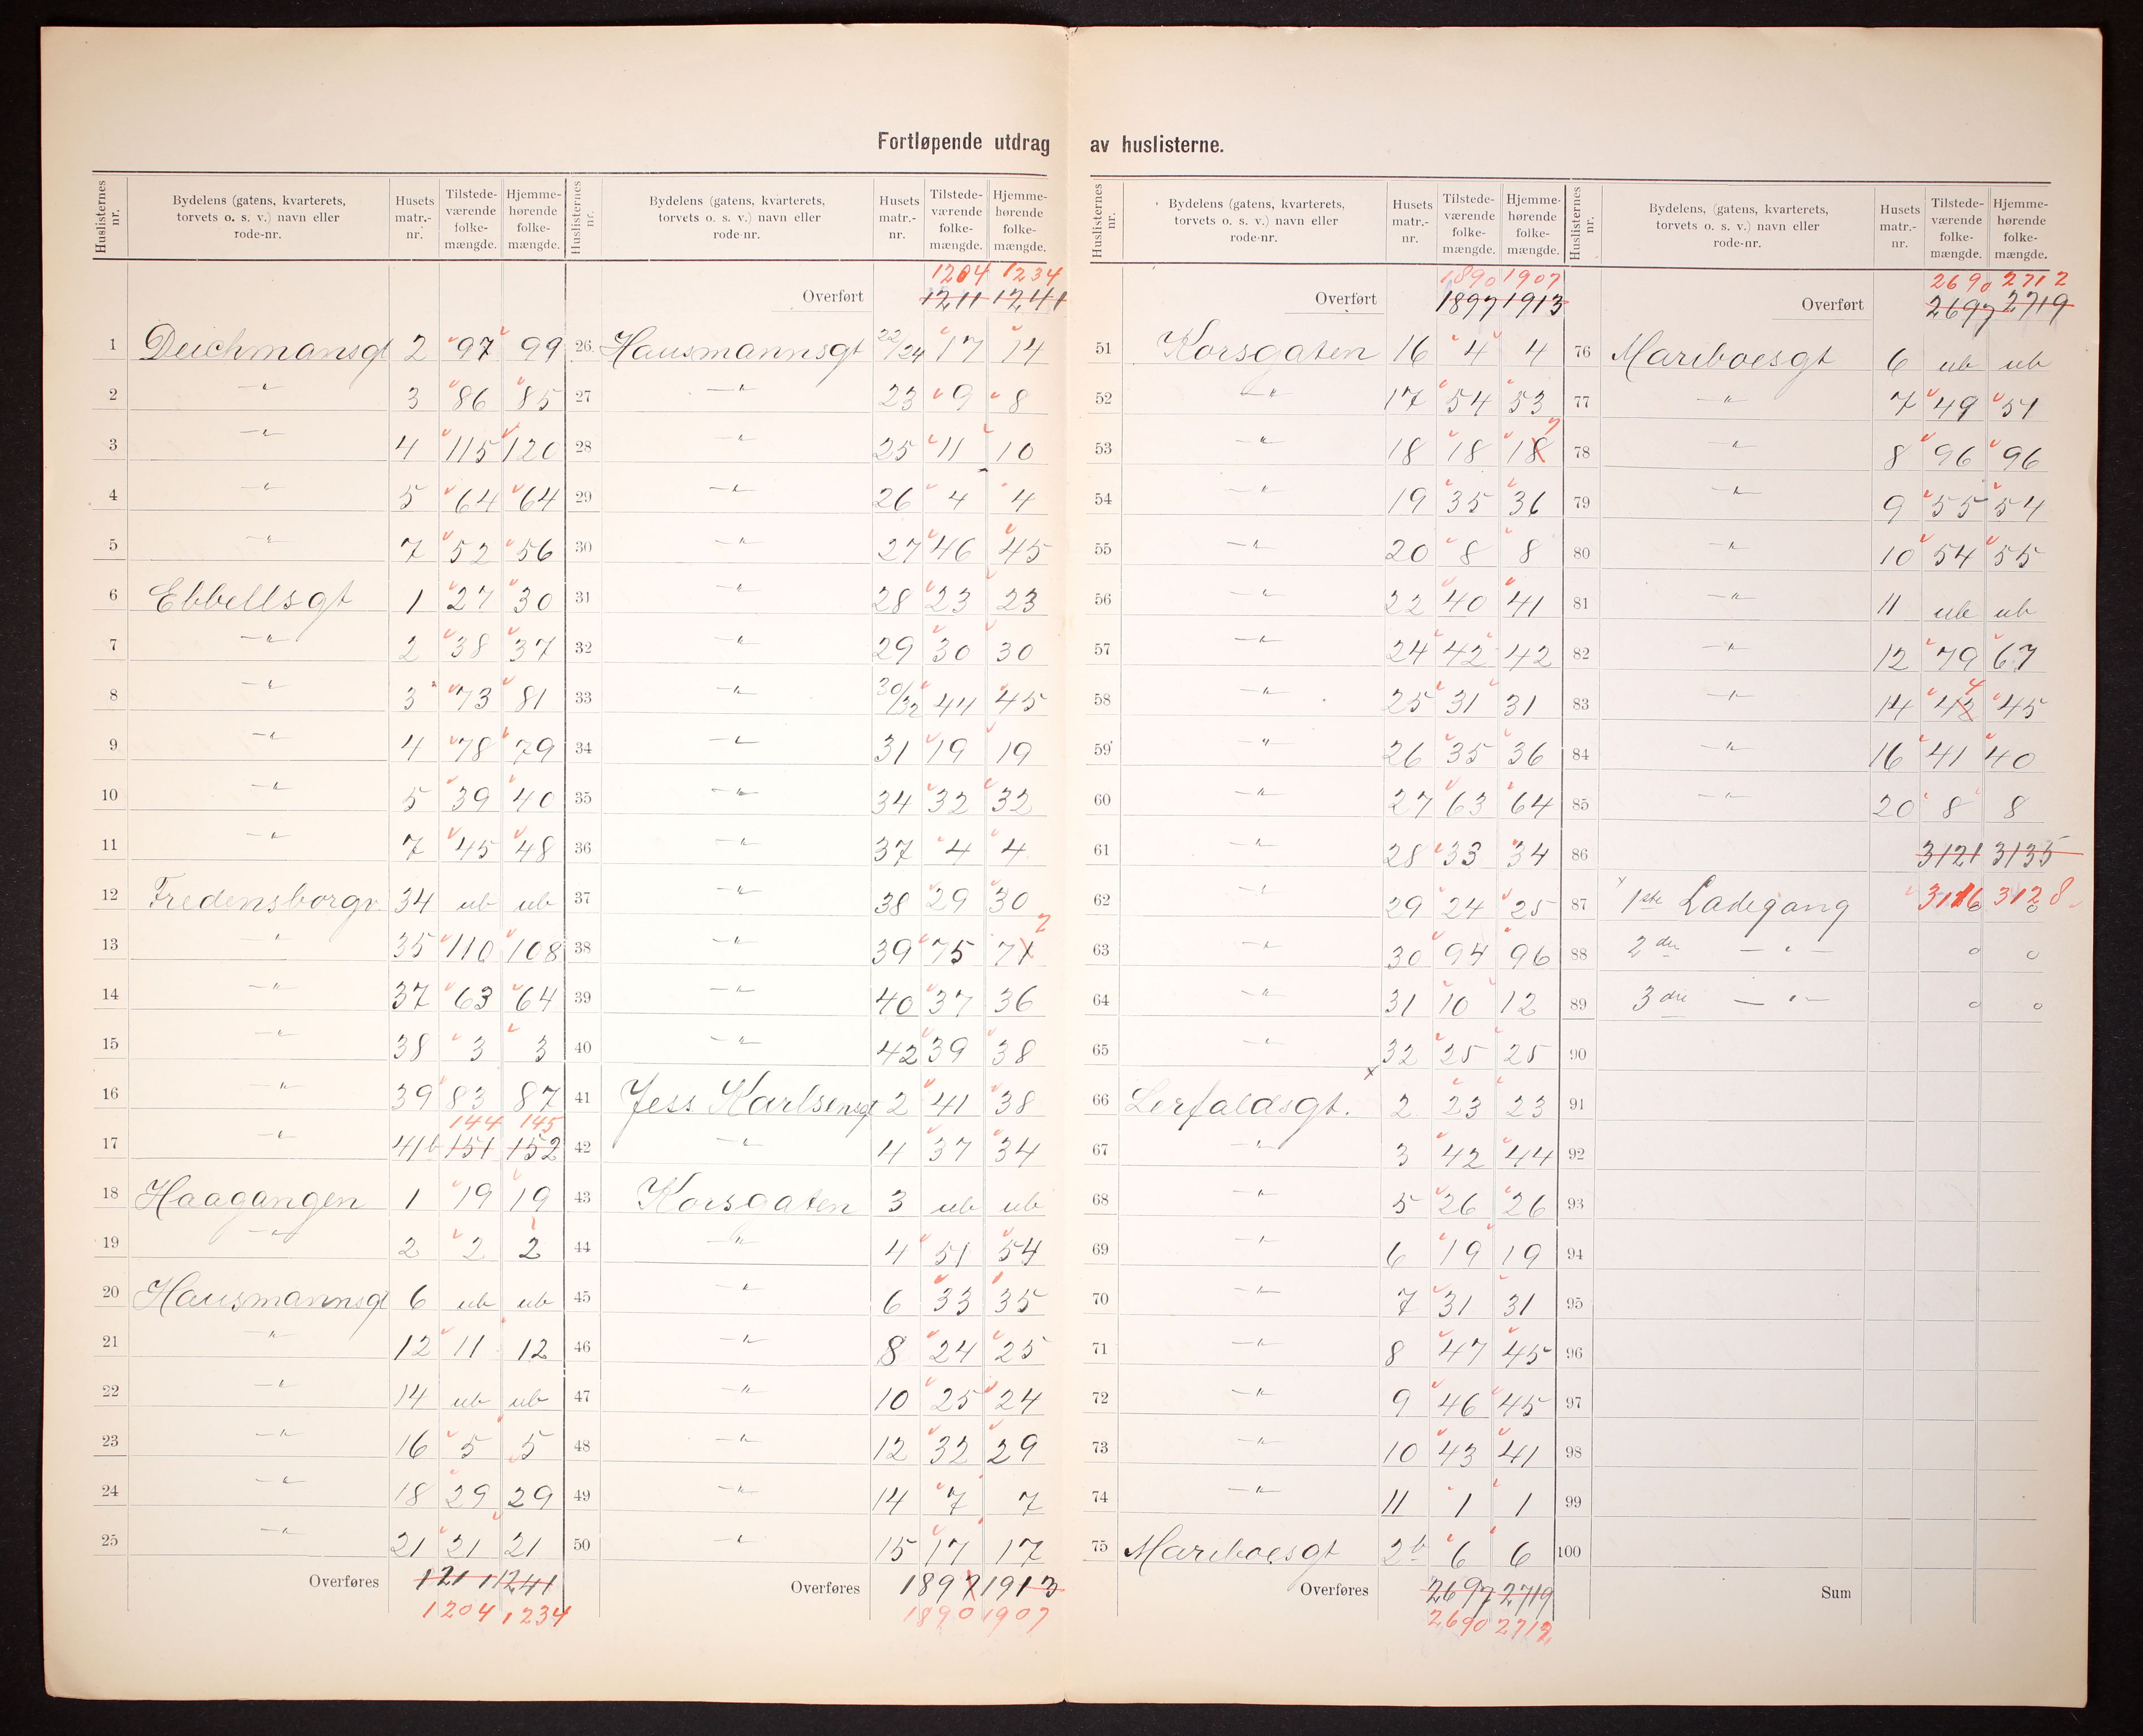 Fortløpende utdrag av huslisterne.
Huslisternes nr. | Bydelens (gatens, kvarterets, torvets o. s. v.) navn eller rode-nr. | Husets matr.-nr. | Tilstede-værende folke-mængde. | Hjemme-hørende folke-mængde.
1 Deichmansgt 2 97 99
2 —"— 3 86 85
3 —"— 4 115 120
4 —"— 5 64 64
5 —"— 7 52 56
6 Ebbellsgt 1 27 30
7 —"— 2 38 37
8 —"— 3 73 81
9 —"— 4 78 79
10 —"— 5 39 40
11 —"— 7 45 48
12 Fredensborgv 34 ub ub
13 —"— 35 110 108
14 —"— 37 63 64
15 —"— 38 3 3
16 —"— 39 83 87
144 145
17 —"— 41b 151 152
18 Haagangen 1 19 19
19 —"— 2 2 2
20 Hausmannsgt 6 ub ub
21 —"— 12 11 12
22 —"— 14 ub ub
23 —"— 16 5 5
24 —"— 18 29 29
25 —"— 21 21 21
Overføres 1211 1241
1204 1234
Huslisternes nr. | Bydelens (gatens, kvarterets, torvets o. s. v.) navn eller rode-nr. | Husets matr.-nr. | Tilstede-værende folke-mængde. | Hjemme-hørende folke-mængde.
1204 1234
Overført 1211 1241
26 Hausmannsgt 22/24 17 14
27 —"— 23 9 8
28 —"— 25 11 10
29 —"— 26 4 4
30 —"— 27 46 45
31 —"— 28 23 23
32 —"— 29 30 30
33 —"— 30/32 44 45
34 —"— 31 19 19
35 —"— 34 32 32
36 —"— 37 4 4
37 —"— 38 29 30
2
38 —"— 39 75 71
39 —"— 40 37 36
40 —"— 42 39 38
41 Jess Karlsensgt 2 41 38
42 —"— 4 37 34
43 Korsgaten 3 ub ub
44 —"— 4 51 54
45 —"— 6 33 35
46 —"— 8 24 25
47 —"— 10 25 24
48 —"— 12 32 29
49 —"— 14 7 7
50 —"— 15 17 17
Overføres 1897 1913
1890 1907
Huslisternes nr. | Bydelens (gatens, kvarterets, torvets o. s. v.) navn eller rode-nr. | Husets matr.-nr. | Tilstede-værende folke-mængde. | Hjemme-hørende folke-mængde.
1890 1907
Overført 1897 1913
51 Korsgaten 16 4 4
52 —"— 17 54 53
7
53 —"— 18 18 18
54 —"— 19 35 36
55 —"— 20 8 8
56 —"— 22 40 41
57 —"— 24 42 42
58 —"— 25 31 31
59 —"— 26 35 36
60 —"— 27 63 64
61 —"— 28 33 34
62 —"— 29 24 25
63 —"— 30 94 96
64 —"— 31 10 12
65 —"— 32 25 25
66 Lerfaldsgt. 2 23 23
67 —"— 3 42 44
68 —"— 5 26 26
69 —"— 6 19 19
70 —"— 7 31 31
71 —"— 8 47 45
72 —"— 9 46 45
73 —"— 10 43 41
74 —"— 11 1 1
75 Mariboesgt 2b 6 6
Overføres 2697 2719
2690 2712
Huslisternes nr. | Bydelens, (gatens, kvarterets, torvets o. s. v.) navn eller rode-nr. | Husets matr.-nr. | Tilstede-værende folke-mængde. | Hjemme-hørende folke-mængde.
2690 2712
Overført 2697 2719
76 Mariboesgt 6 ub ub
77 —"— 7 49 51
78 —"— 8 96 96
79 —"— 9 55 54
80 —"— 10 54 55
81 —"— 11 ub ub
82 —"— 12 79 67
4
83 —"— 14 42 45
84 —"— 16 41 40
85 —"— 20 8 8
86 3121 3135
3116 3128
87 1ste Ladegang o o
88 2den —"— o o
89 3die —"— o o
90
91
92
93
94
95
96
97
98
99
100
Sum